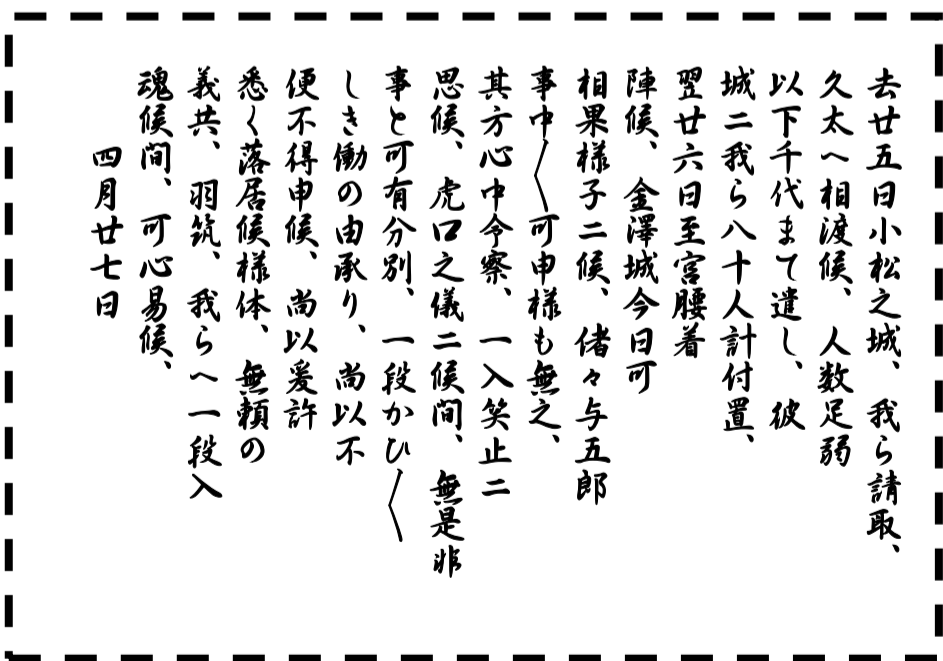 去廿五日小松之城、我ら請取、
久太へ相渡候、人数足弱
以下千代まて遣し、彼
城二我ら八十人計付置、
翌廿六日至宮腰着
陣候、金澤城今日可
相果様子二候、偖々与五郎
事中〳〵可申様も無之、
其方心中令察、一入笑止二
思候、虎口之儀二候間、無是非
事と可有分別、一段かひ〳〵
しき働の由承り、尚以不
便不得申候、尚以爰許
悉く落居候様体、無頼の
義共、羽筑、我らへ一段入
魂候間、可心易候、
四月廿七日